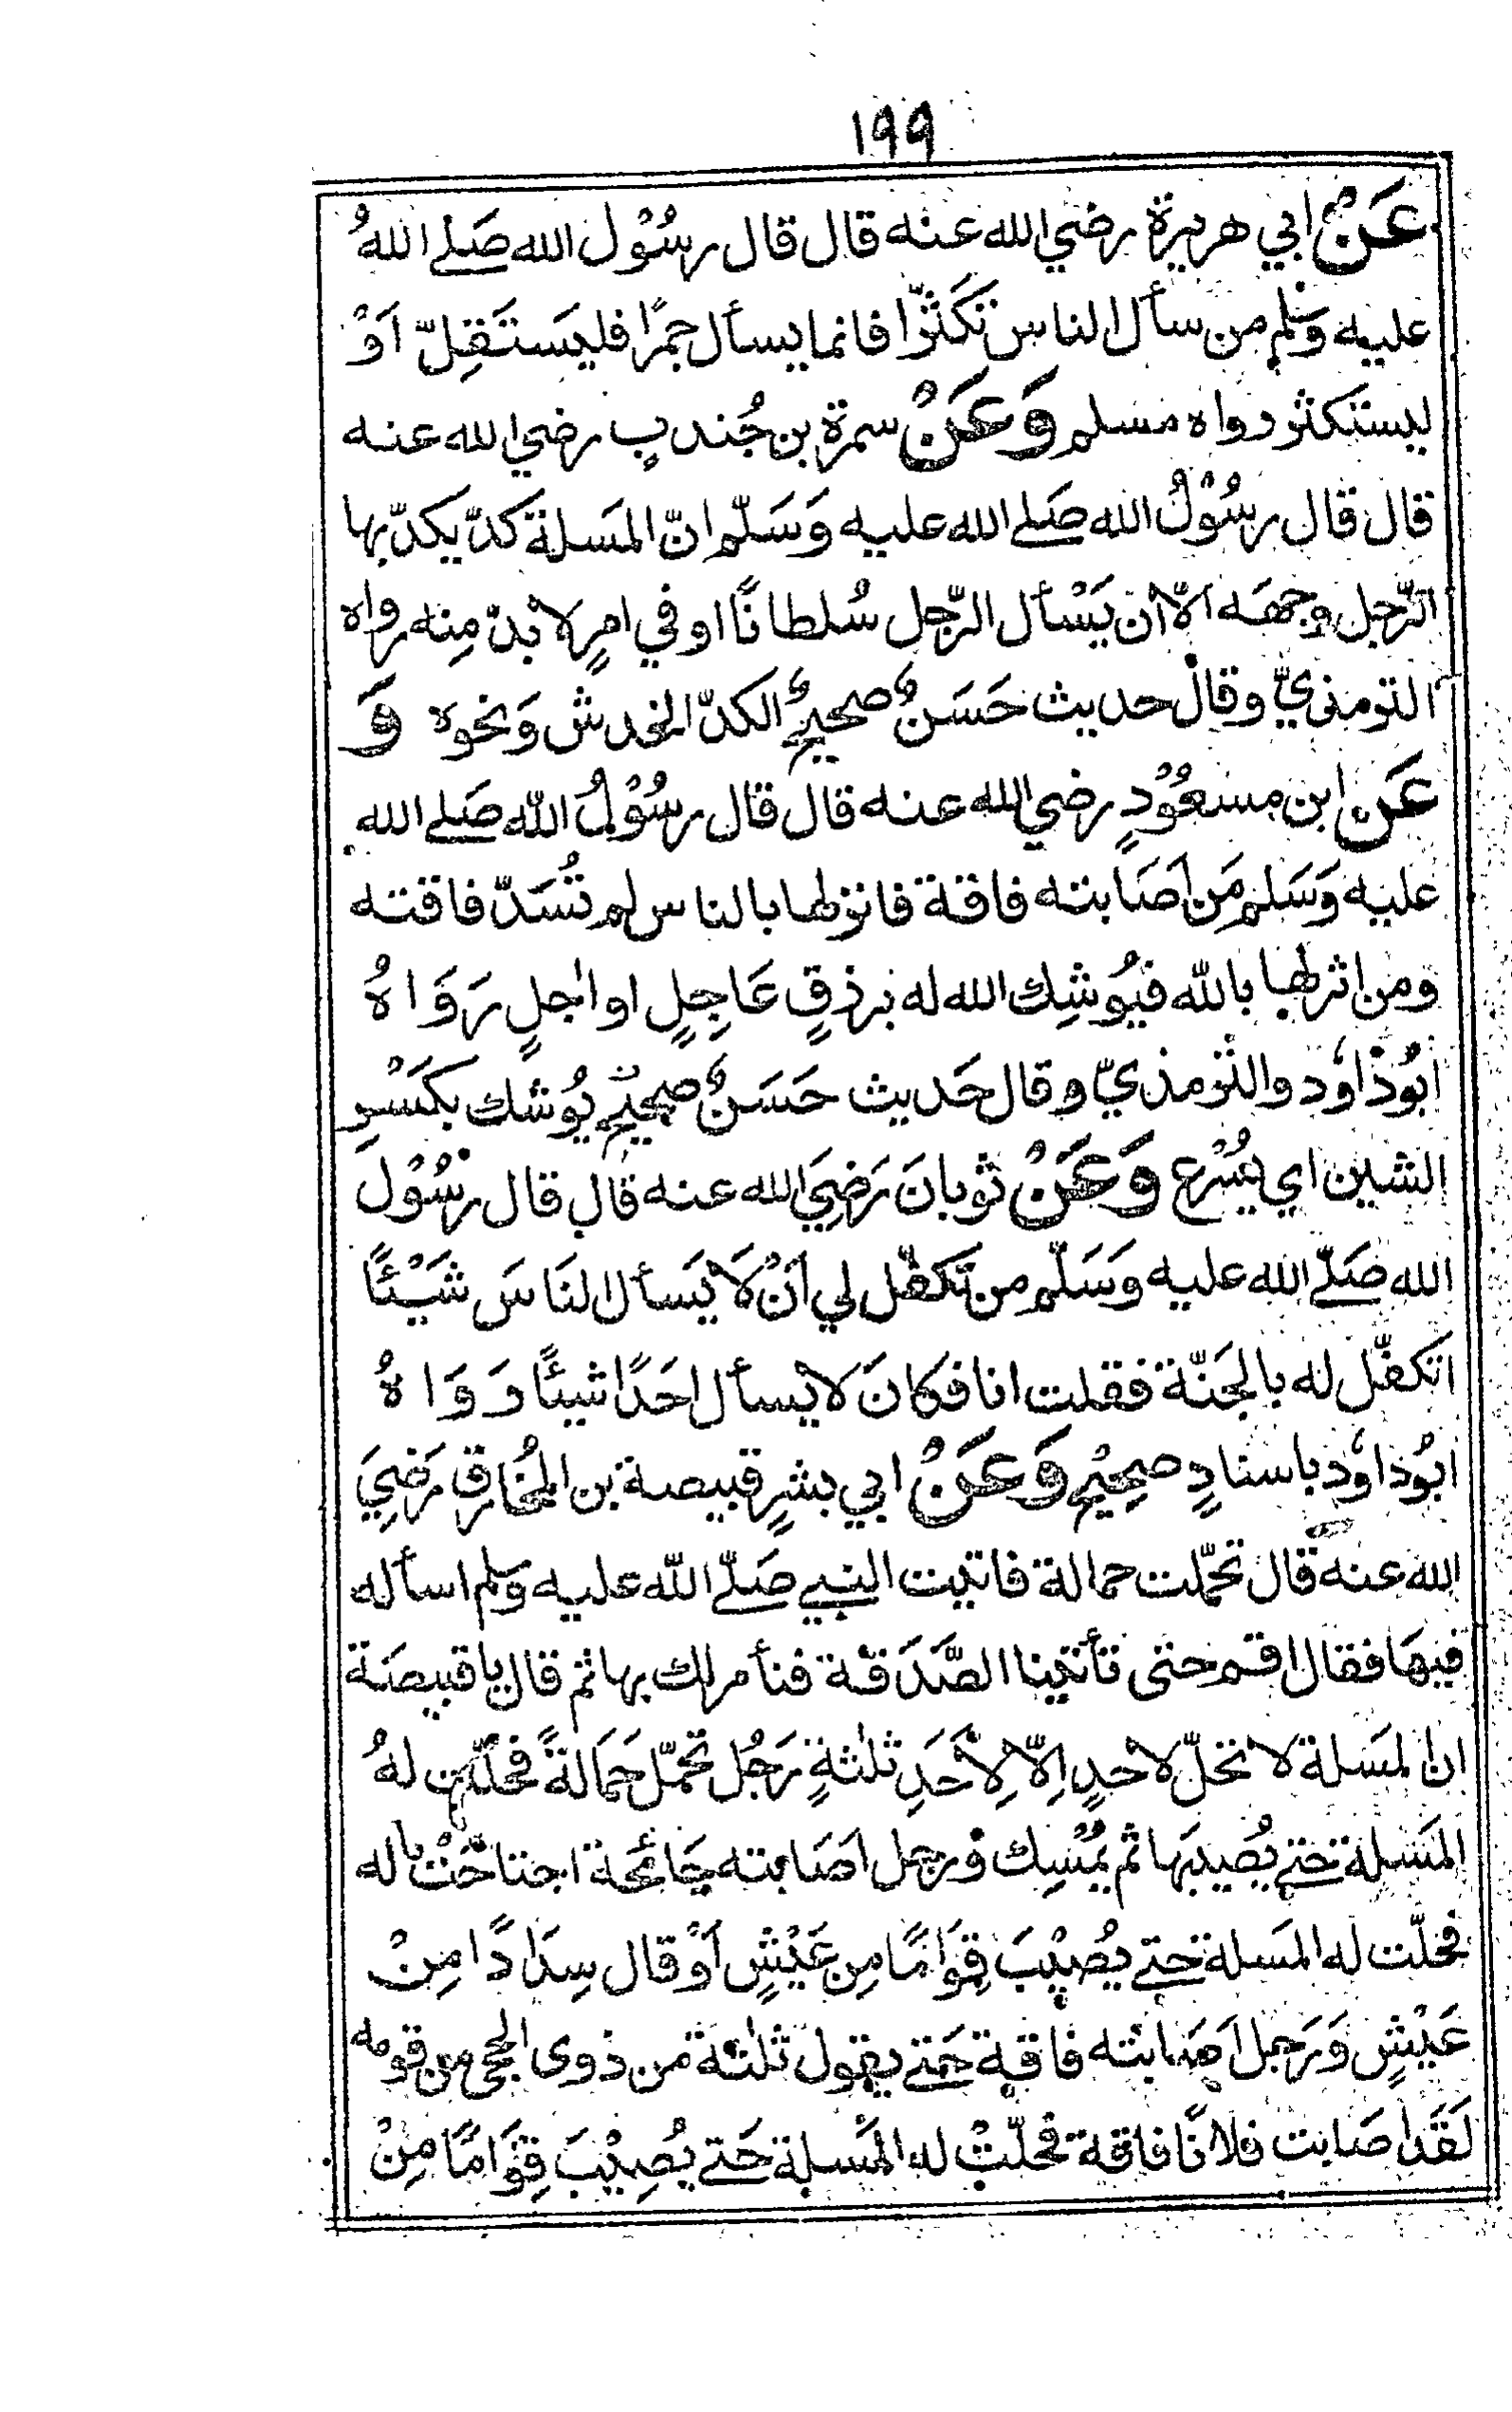 ١٩٩
عَنْ ابي هريرة رضي الله عنه قال قال رسُوْل الله صَلے اللهُ
عليه وَسَلم من سأل الناس تَكَثّرًا فانما يسأل جمرًا فليَستَقِلّ اَوْ
ليستكثر رواه مسلم وَعَنْ سمرة بن جُندبٍ رضي الله عنه
قال قال رسُوْلُ الله صَلے الله عليه وَسَلّم انّ المَسلة كدّ يكدّ بها
الرّجل وجهَه الّا اَن يَسْأل الرّجل سُلطانًا او في امرٍ لا بدّ مِنه رواه
الترمذيّ وقال حديث حَسَنٌ صحيحٌ الكدّ الخدش وَنحوه وَ
عَن ابن مسعُوْدٍ رضي الله عنه قال قال رسُوْلُ اللّه صَلے الله
عليه وَسَلم مَن اَصَابته فاقة فانزلها بالناس لم تُسَدّ فاقته
ومن انزلها باللّه فيُوشِك الله له برزقٍ عَاجِلٍ او اٰجلٍ رَوَاهُ
ابُوْداوٗد والتّرمذيّ وقال حَديث حَسَنٌ صحيحٌ يُوشك بكَسْرِ
الشين اي يُسْرع وَعَنْ ثوبانَ رَضِيَ الله عنه قال قال رسُوْل
الله صَلّے الله عليه وَسَلّم من تَكفّل لي اَنْ لَا يَسأل النَاسَ شَيْئًا
اتكفّل له بالجَنّة فقلت انا فكانَ لا يسأل احَدًا شيئًا رَوَاهُ
ابُوداوٗد باسنادٍ صحِيْحٍ وَعَنْ ابي بشرٍ قبيصة بن المُخارق رَضِيَ
الله عنه قال تحمّلت حمالة فاتيت النبي صَلّے اللّه عليه وَسلم اسأله
فيهَا فقال اقم حتى تأتينا الصَّدَقة فنأمر لك بها ثم قال يا قبيصَة
ان المَسلة لا تحلّ لاحدٍ اِلّا لِاَحَدِ ثلٰثةٍ رَجُل تحمّل حَمَالةً فحلّت لهُ
المَسلة حتے يُصيبَها ثم يُمْسِك ورجل اَصَابته جَائحة اجتاحَتْ ماله
فحلّت له المَسلة حتے يُصِيْبَ قِوَامًا مِن عَيْشٍ اَوْ قال سِدَادًا مِنْ
عَيْشٍ وَرَجل اَصَابته فاقة حَتے يقول ثلٰثة من ذوى الحجى من قومه
لَقَد اصَابت فلانًا فاقة فحلّتْ له المَسلة حَتے يُصِيْبَ قِوَامًا مِنْ